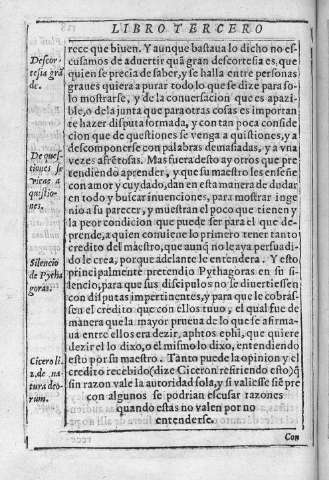 LIBRO TERCERO
rece que biuen. Y aunque bastaua lo dicho no es-
cusamos de aduertir quã gran descortesia es, que
quien se precia de saber, y se halla entre personas
graues quiera apurar todo lo que se dize para so-
lo mostrarse, y de la conuersacion que es apazi-
ble, o de la junta que para otras cosas es importan
te hazer disputa formada, y con tan poca conside
racion que de questiones se venga a quistiones, y a
descomponerse con palabras demasiadas, y a vna
vezes afrẽtosas. Mas fuera desto ay otros que pre
tendiendo aprender, y que su maestro les enseñe
con amor y cuydado, dan en esta manera de dudar
en todo y buscar inuenciones, para mostrar inge
nio a su parecer, y muestran el poco que tienen y
la peor condicion que puede ser para el que de-
prende, a quien conuiene lo primero tener tanto
credito del maestro, que aunq̃ no le aya persuadi-
do le crea, porque adelante le entendera. Y esto
principalmente pretendio Pythagoras en su si-
lencio, para que sus discipulos no se diuertiessen
con disputas impertinentes, y para que le cobras-
sen el credito que con ellos tuuo, el qual fue de
manera que la mayor prueua de lo que se afirma-
ua entre ellos era dezir, aphtos ephi, que quiere
dezir el lo dixo, o el mismo lo dixo, entendiendo
esto por su maestro. Tanto puede la opinion y el
credito recebido (dize Ciceron refiriendo esto) q̃
sin razon vale la autoridad sola, y si valiesse siẽpre
con algunos se podrian escusar razones
quando estas no valen por no
entenderse.
Con
Descor-
tesia grã
de.
De ques-
tiones se
viene a
quistio-
nes.
Silencio
de Pytha
goras.
Cicero li.
1. de na
tura deo-
rum.